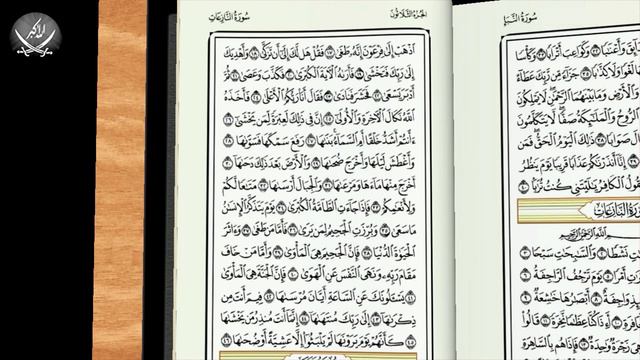 سُورَةُ النَّبَإِ
وَأَعْنَابًا ﴿٣٢﴾ وَكَوَاعِبَ أَتْرَابًا ﴿٣٣﴾ وَكَأْسًا
لَغْوًا وَلَا كِذَّابًا ﴿٣٥﴾ جَزَاءً مِّن رَّبِّكَ عَطَاءً
وَالْأَرْضِ وَمَا بَيْنَهُمَا الرَّحْمَٰنِ لَا يَمْلِكُونَ
الرُّوحُ وَالْمَلَائِكَةُ صَفًّا لَّا يَتَكَلَّمُونَ
صَوَابًا ﴿٣٨﴾ ذَٰلِكَ الْيَوْمُ الْحَقُّ فَمَن
إِنَّا أَنذَرْنَاكُمْ عَذَابًا قَرِيبًا يَوْمَ يَنظُرُ
وَيَقُولُ الْكَافِرُ يَا لَيْتَنِي كُنتُ تُرَابًا ﴿٤٠﴾
سُورَةُ النَّازِعَاتِ
اللَّهِ الرَّحْمَٰنِ الرَّحِيمِ
نَشْطًا ﴿٢﴾ وَالسَّابِحَاتِ سَبْحًا ﴿٣﴾
أَمْرًا ﴿٥﴾ يَوْمَ تَرْجُفُ الرَّاجِفَةُ ﴿٦﴾
وَاجِفَةٌ ﴿٨﴾ أَبْصَارُهَا خَاشِعَةٌ ﴿٩﴾
أَإِذَا كُنَّا عِظَامًا نَّخِرَةً ﴿١١﴾
زَجْرَةٌ وَاحِدَةٌ ﴿١٣﴾ فَإِذَا هُم بِالسَّاهِرَةِ
الجُزْءُ الثَّلَاثُونَ
سُورَةُ النَّازِعَاتِ
اذْهَبْ إِلَىٰ فِرْعَوْنَ إِنَّهُ طَغَىٰ ﴿١٧﴾ فَقُلْ هَل لَّكَ إِلَىٰ أَن تَزَكَّىٰ ﴿١٨﴾ وَأَهْدِيَكَ
إِلَىٰ رَبِّكَ فَتَخْشَىٰ ﴿١٩﴾ فَأَرَاهُ الْآيَةَ الْكُبْرَىٰ ﴿٢٠﴾ فَكَذَّبَ وَعَصَىٰ ﴿٢١﴾ ثُمَّ
أَدْبَرَ يَسْعَىٰ ﴿٢٢﴾ فَحَشَرَ فَنَادَىٰ ﴿٢٣﴾ فَقَالَ أَنَا رَبُّكُمُ الْأَعْلَىٰ ﴿٢٤﴾ فَأَخَذَهُ
اللَّهُ نَكَالَ الْآخِرَةِ وَالْأُولَىٰ ﴿٢٥﴾ إِنَّ فِي ذَٰلِكَ لَعِبْرَةً لِّمَن يَخْشَىٰ ﴿٢٦﴾
أَأَنتُمْ أَشَدُّ خَلْقًا أَمِ السَّمَاءُ بَنَاهَا ﴿٢٧﴾ رَفَعَ سَمْكَهَا فَسَوَّاهَا ﴿٢٨﴾
وَأَغْطَشَ لَيْلَهَا وَأَخْرَجَ ضُحَاهَا ﴿٢٩﴾ وَالْأَرْضَ بَعْدَ ذَٰلِكَ دَحَاهَا ﴿٣٠﴾
أَخْرَجَ مِنْهَا مَاءَهَا وَمَرْعَاهَا ﴿٣١﴾ وَالْجِبَالَ أَرْسَاهَا ﴿٣٢﴾ مَتَاعًا لَّكُمْ
وَلِأَنْعَامِكُمْ ﴿٣٣﴾ فَإِذَا جَاءَتِ الطَّامَّةُ الْكُبْرَىٰ ﴿٣٤﴾ يَوْمَ يَتَذَكَّرُ الْإِنسَانُ
مَا سَعَىٰ ﴿٣٥﴾ وَبُرِّزَتِ الْجَحِيمُ لِمَن يَرَىٰ ﴿٣٦﴾ فَأَمَّا مَن طَغَىٰ ﴿٣٧﴾ وَآثَرَ
الْحَيَاةَ الدُّنْيَا ﴿٣٨﴾ فَإِنَّ الْجَحِيمَ هِيَ الْمَأْوَىٰ ﴿٣٩﴾ وَأَمَّا مَنْ خَافَ
مَقَامَ رَبِّهِ وَنَهَى النَّفْسَ عَنِ الْهَوَىٰ ﴿٤٠﴾ فَإِنَّ الْجَنَّةَ هِيَ الْمَأْوَىٰ
﴿٤١﴾ يَسْأَلُونَكَ عَنِ السَّاعَةِ أَيَّانَ مُرْسَاهَا ﴿٤٢﴾ فِيمَ أَنتَ مِن
ذِكْرَاهَا ﴿٤٣﴾ إِلَىٰ رَبِّكَ مُنتَهَاهَا ﴿٤٤﴾ إِنَّمَا أَنتَ مُنذِرُ مَن يَخْشَاهَا
﴿٤٥﴾ كَأَنَّهُمْ يَوْمَ يَرَوْنَهَا لَمْ يَلْبَثُوا إِلَّا عَشِيَّةً أَوْ ضُحَاهَا ﴿٤٦﴾
الله أكبر